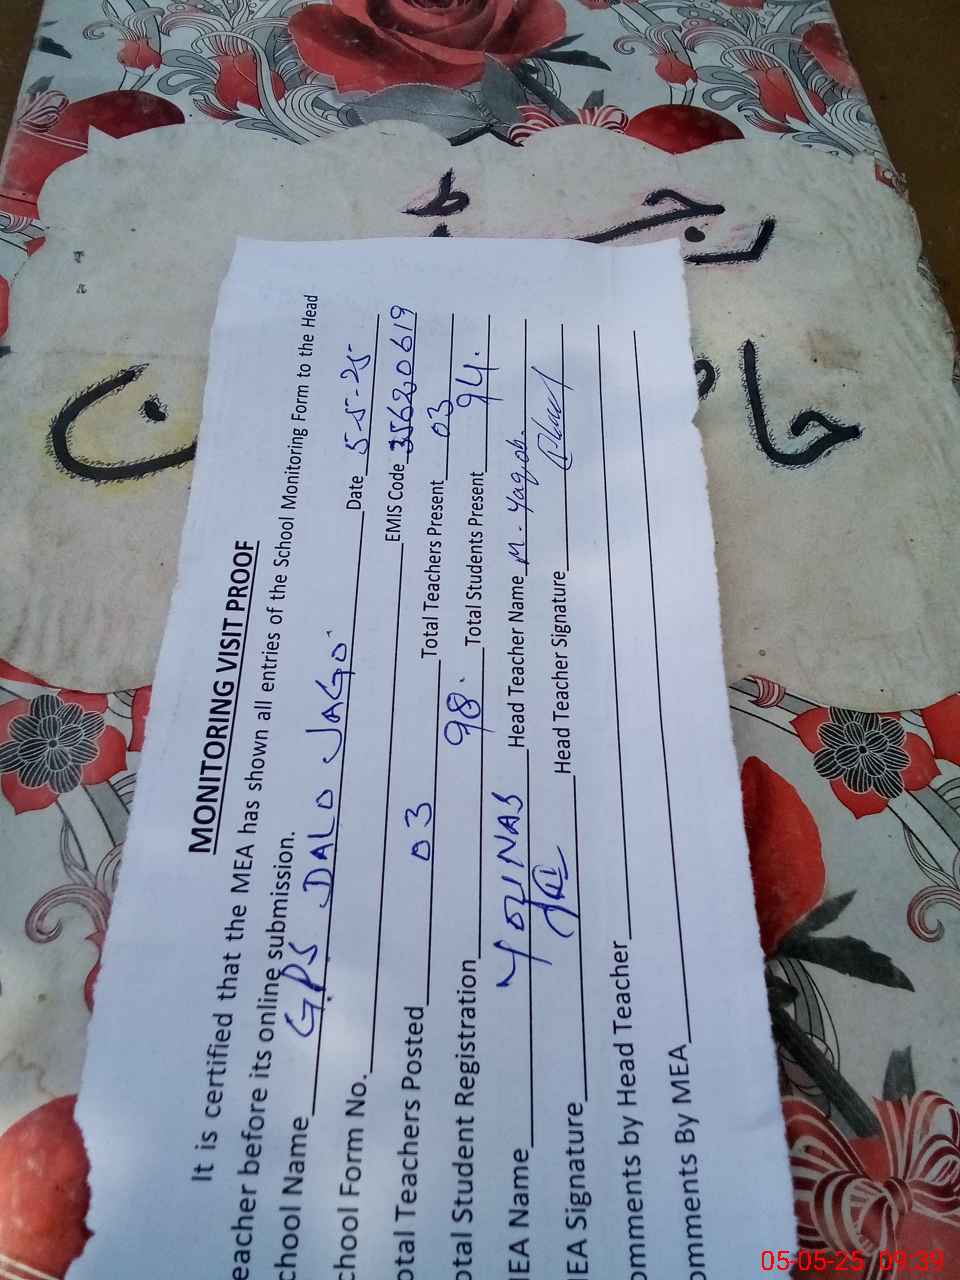 MONITORING VISIT PROOF
It is certified that the MEA has shown all entries of the School Monitoring Form to the Head
eacher before its online submission.
chool Name GPS DALO JAGO Date 5-5-25
chool Form No. EMIS Code 35620619
otal Teachers Posted 03 Total Teachers Present 03
otal Student Registration 98. Total Students Present 94.
IEA Name Head Teacher Name M. Yaqob.
IEA Signature Head Teacher Signature
omments by Head Teacher
omments By MEA
05-05-25 09:39